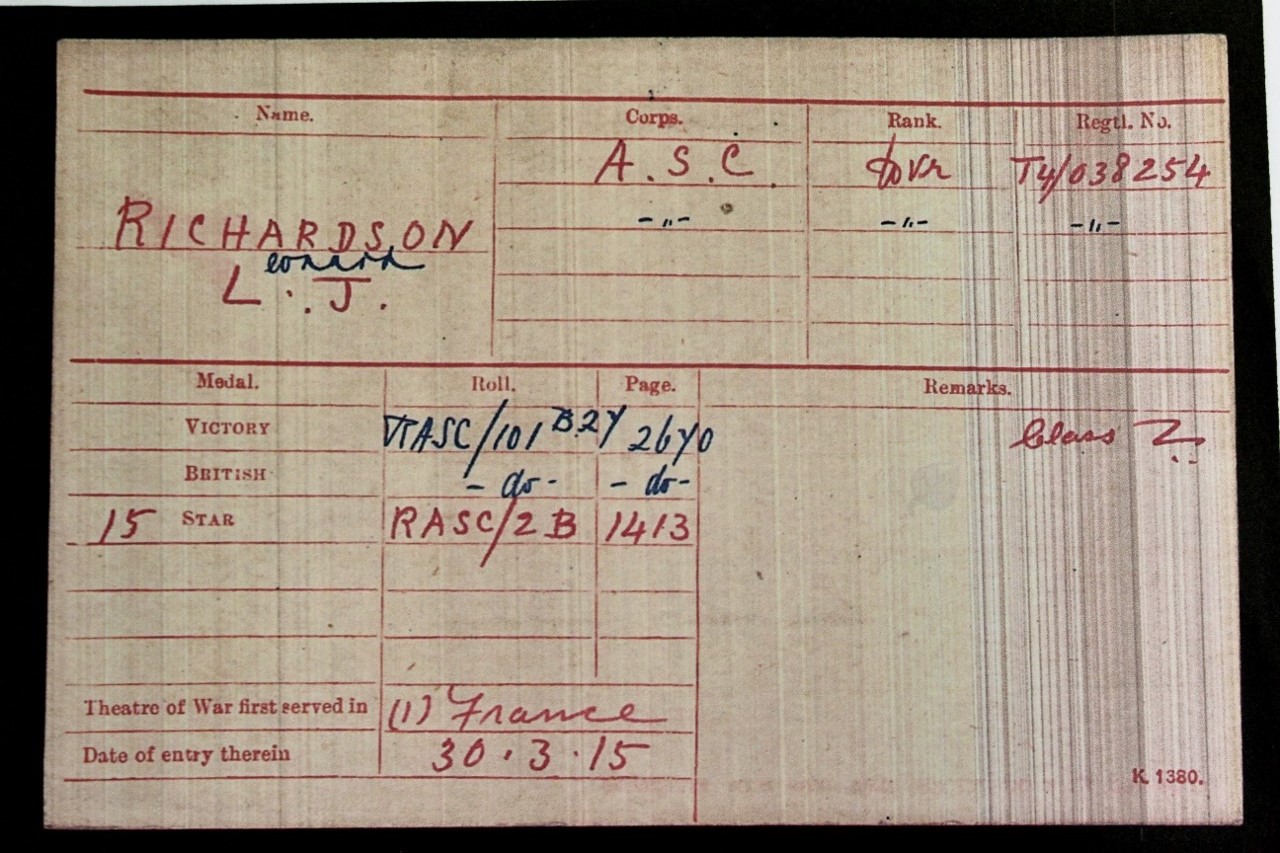 Name. Corps. Rank. Regtl. No.
A.S.C. Dvr T4/038254
-"- -"- -"-
RICHARDSON
eonard
L. J.
Medal. Roll. Page. Remarks.
VICTORY RASC/101 B27 2670 Class Z.
BRITISH - do - - do -
15 STAR RASC/2B 1413
Theatre of War first served in (1) France
Date of entry therein 30.3.15
K. 1380.